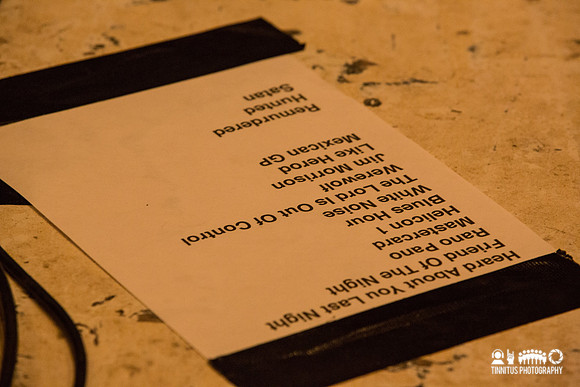 Heard About You Last Night
Friend Of The Night
Rano Pano
Mastercard
Helicon 1
Blues Hour
White Noise
The Lord Is Out Of Control
Werewolf
Jim Morrison
Like Herod
Mexican GP
Remurdered
Hunted
Satan
TINNITUS PHOTOGRAPHY